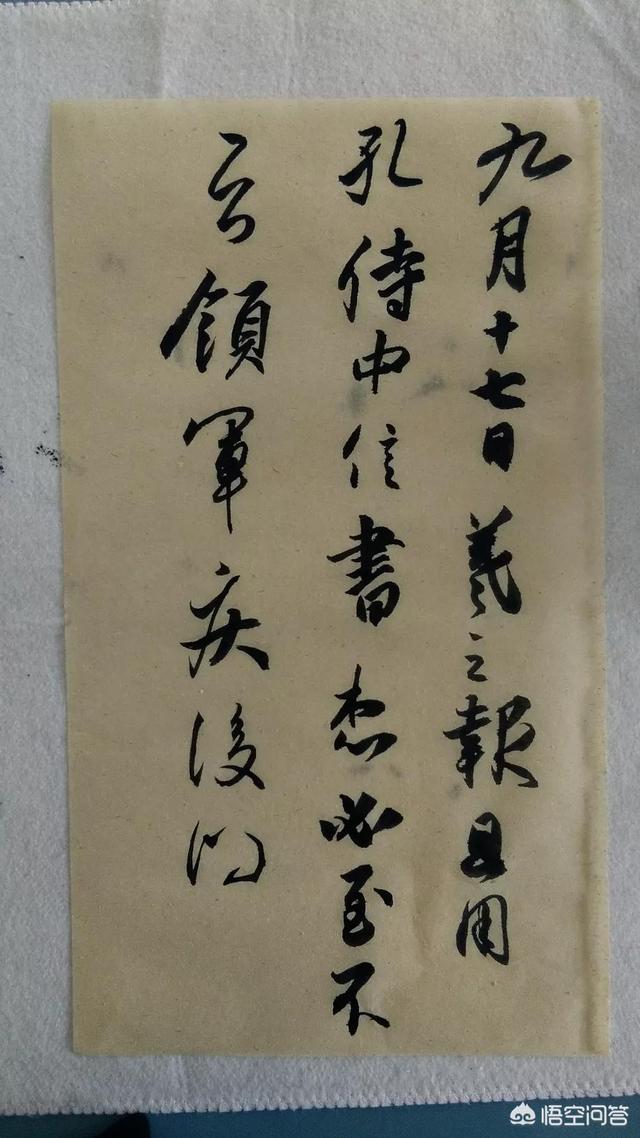 九月十七日羲之報且因
孔侍中信書想必至不
知領軍疾後問
悟空问答